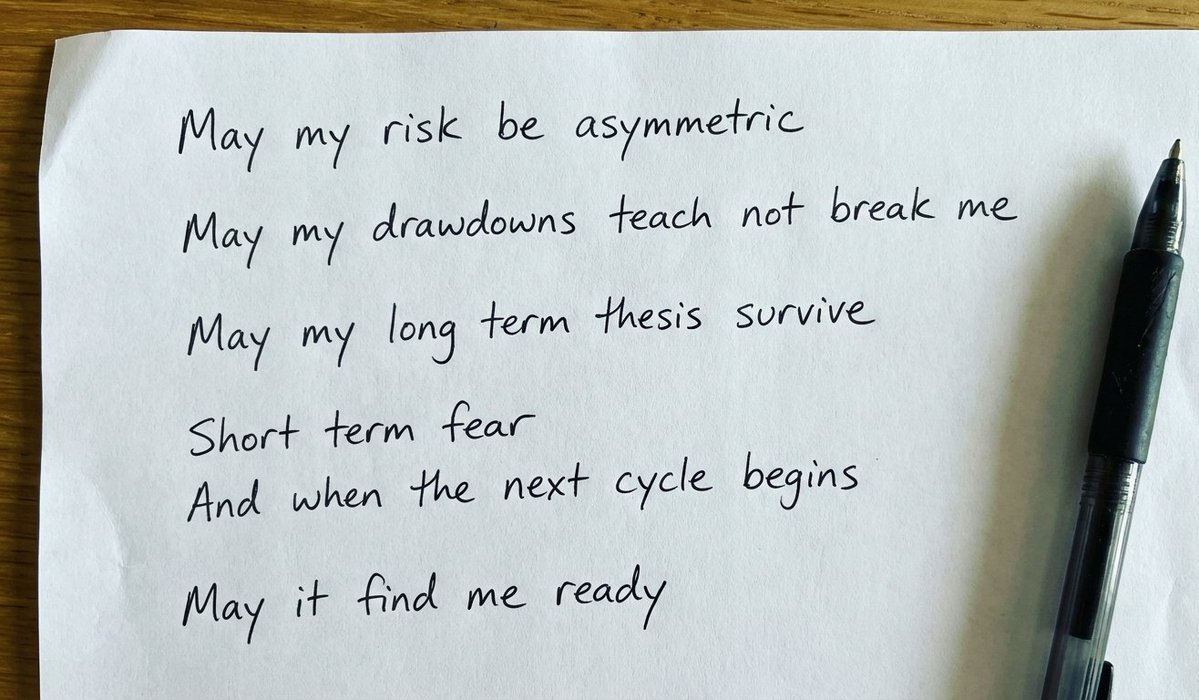 May my risk be asymmetric
May my drawdowns teach not break me
May my long term thesis survive
Short term fear
And when the next cycle begins
May it find me ready